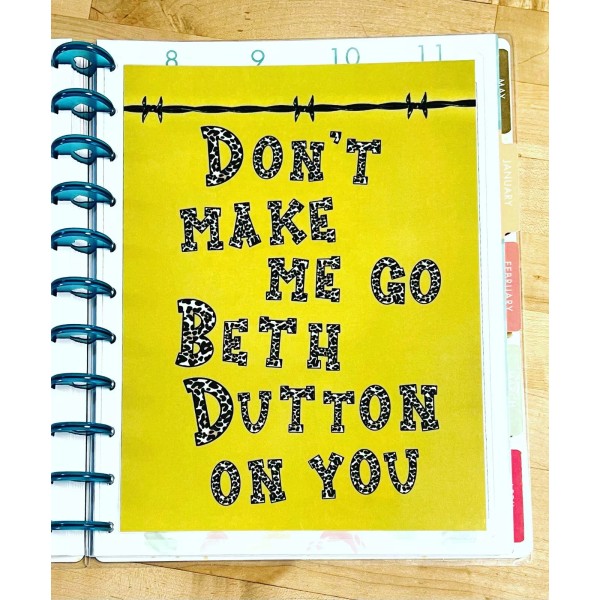 8 9 10 11
DON'T
MAKE
ME GO
BETH
DUTTON
ON YOU
MAY
JANUARY
FEBRUARY